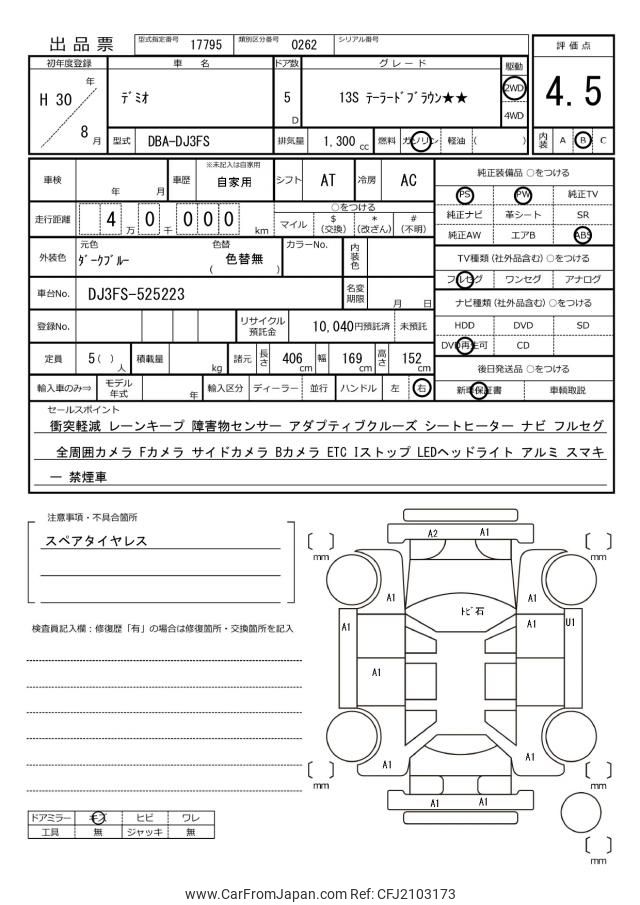 出品票
型式指定番号 17795 類別区分番号 0262 シリアル番号
評価点
4.5
内装 A B C
初年度登録 車名 ドア数 グレード 駆動
H 30 年 8 月
デミオ 5 D 13S テーラードブラウン★★ 2WD 4WD
型式 DBA-DJ3FS 排気量 1,300 cc 燃料 ガソリン 軽油 ( )
車検 年 月 車歴 ※未記入は自家用 自家用 シフト AT 冷房 AC
走行距離 4 万 0 千 0 0 0 km
○をつける
マイル $(交換) *(改ざん) #(不明)
外装色 元色 ダークブルー 色替 ( 色替無 ) カラーNo. 内装色
車台No. DJ3FS-525223 名変期限 月 日
登録No. リサイクル預託金 10,040円預託済 未預託
定員 5( )人 積載量 kg 諸元 長さ 406cm 幅 169cm 高さ 152cm
輸入車のみ⇒ モデル年式 年 輸入区分 ディーラー 並行 ハンドル 左 右
純正装備品 ○をつける
PS PW 純正TV
純正ナビ 革シート SR
純正AW エアB ABS
TV種類(社外品含む) ○をつける
フルセグ ワンセグ アナログ
ナビ種類(社外品含む) ○をつける
HDD DVD SD
DVD再生可 CD
後日発送品 ○をつける
新車保証書 車輌取説
セールスポイント
衝突軽減 レーンキープ 障害物センサー アダプティブクルーズ シートヒーター ナビ フルセグ
全周囲カメラ Fカメラ サイドカメラ Bカメラ ETC Iストップ LEDヘッドライト アルミ スマキ
ー 禁煙車
注意事項・不具合箇所
スペアタイヤレス
検査員記入欄:修復歴「有」の場合は修復箇所・交換箇所を記入
ドアミラー キズ ヒビ ワレ
工具 無 ジャッキ 無
A2 A1
mm mm
A1 A1
トビ石
A1 A1 U1
A1
A1 A1
mm mm
A1 A1
mm
www.CarFromJapan.com Ref: CFJ2103173